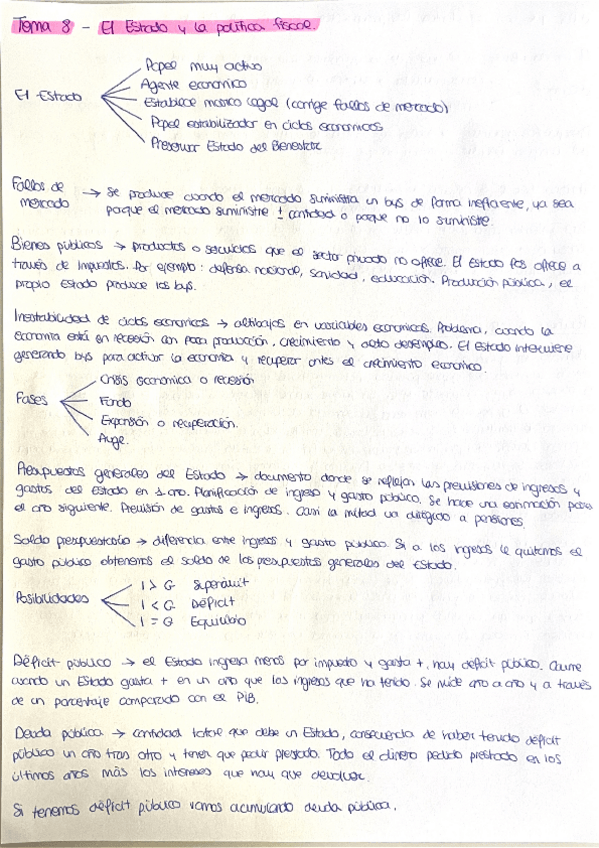 Tema 8 - El Estado y la política fiscal.
El Estado
Papel muy activo
Agente económico
Establece marco legal (corrige fallos de mercado)
Papel estabilizador en ciclos económicos
Preservar Estado del Bienestar
Fallos de mercado → se produce cuando el mercado suministra un bys de forma ineficiente, ya sea
porque el mercado suministre ± cantidad o porque no lo suministre.
Bienes públicos → productos o servicios que el sector privado no ofrece. El Estado los ofrece a
través de impuestos. Por ejemplo: defensa nacional, sanidad, educación. Producción pública, el
propio Estado produce los bys.
Inestabilidad de ciclos económicos → altibajos en variables económicas. Problema, cuando la
economía está en recesión con poca producción, crecimiento y alto desempleo. El Estado interviene
generando bys para activar la economía y recuperar antes el crecimiento económico.
Fases
Crisis económica o recesión
Fondo
Expansión o recuperación.
Auge.
Presupuestos generales del Estado → documento donde se reflejan las previsiones de ingresos y
gastos del Estado en 1 año. Planificación de ingreso y gasto público. Se hace una estimación para
el año siguiente. Previsión de gastos e ingresos. Casi la mitad va dirigido a pensiones.
Saldo presupuestario → diferencia entre ingresos y gasto público. Si a los ingresos le quitamos el
gasto público obtenemos el saldo de los presupuestos generales del Estado.
Posibilidades
I > G Superávit
I < G Déficit
I = G Equilibrio
Déficit público → el Estado ingresa menos por impuesto y gasta +, hay déficit público. Ocurre
cuando un Estado gasta + en un año que los ingresos que ha tenido. Se mide año a año y a través
de un porcentaje comparado con el PIB.
Deuda pública → cantidad total que debe un Estado, consecuencia de haber tenido déficit
público un año tras otro y tener que pedir prestado. Todo el dinero pedido prestado en los
últimos años más los intereses que hay que devolver.
Si tenemos déficit público vamos acumulando deuda pública.